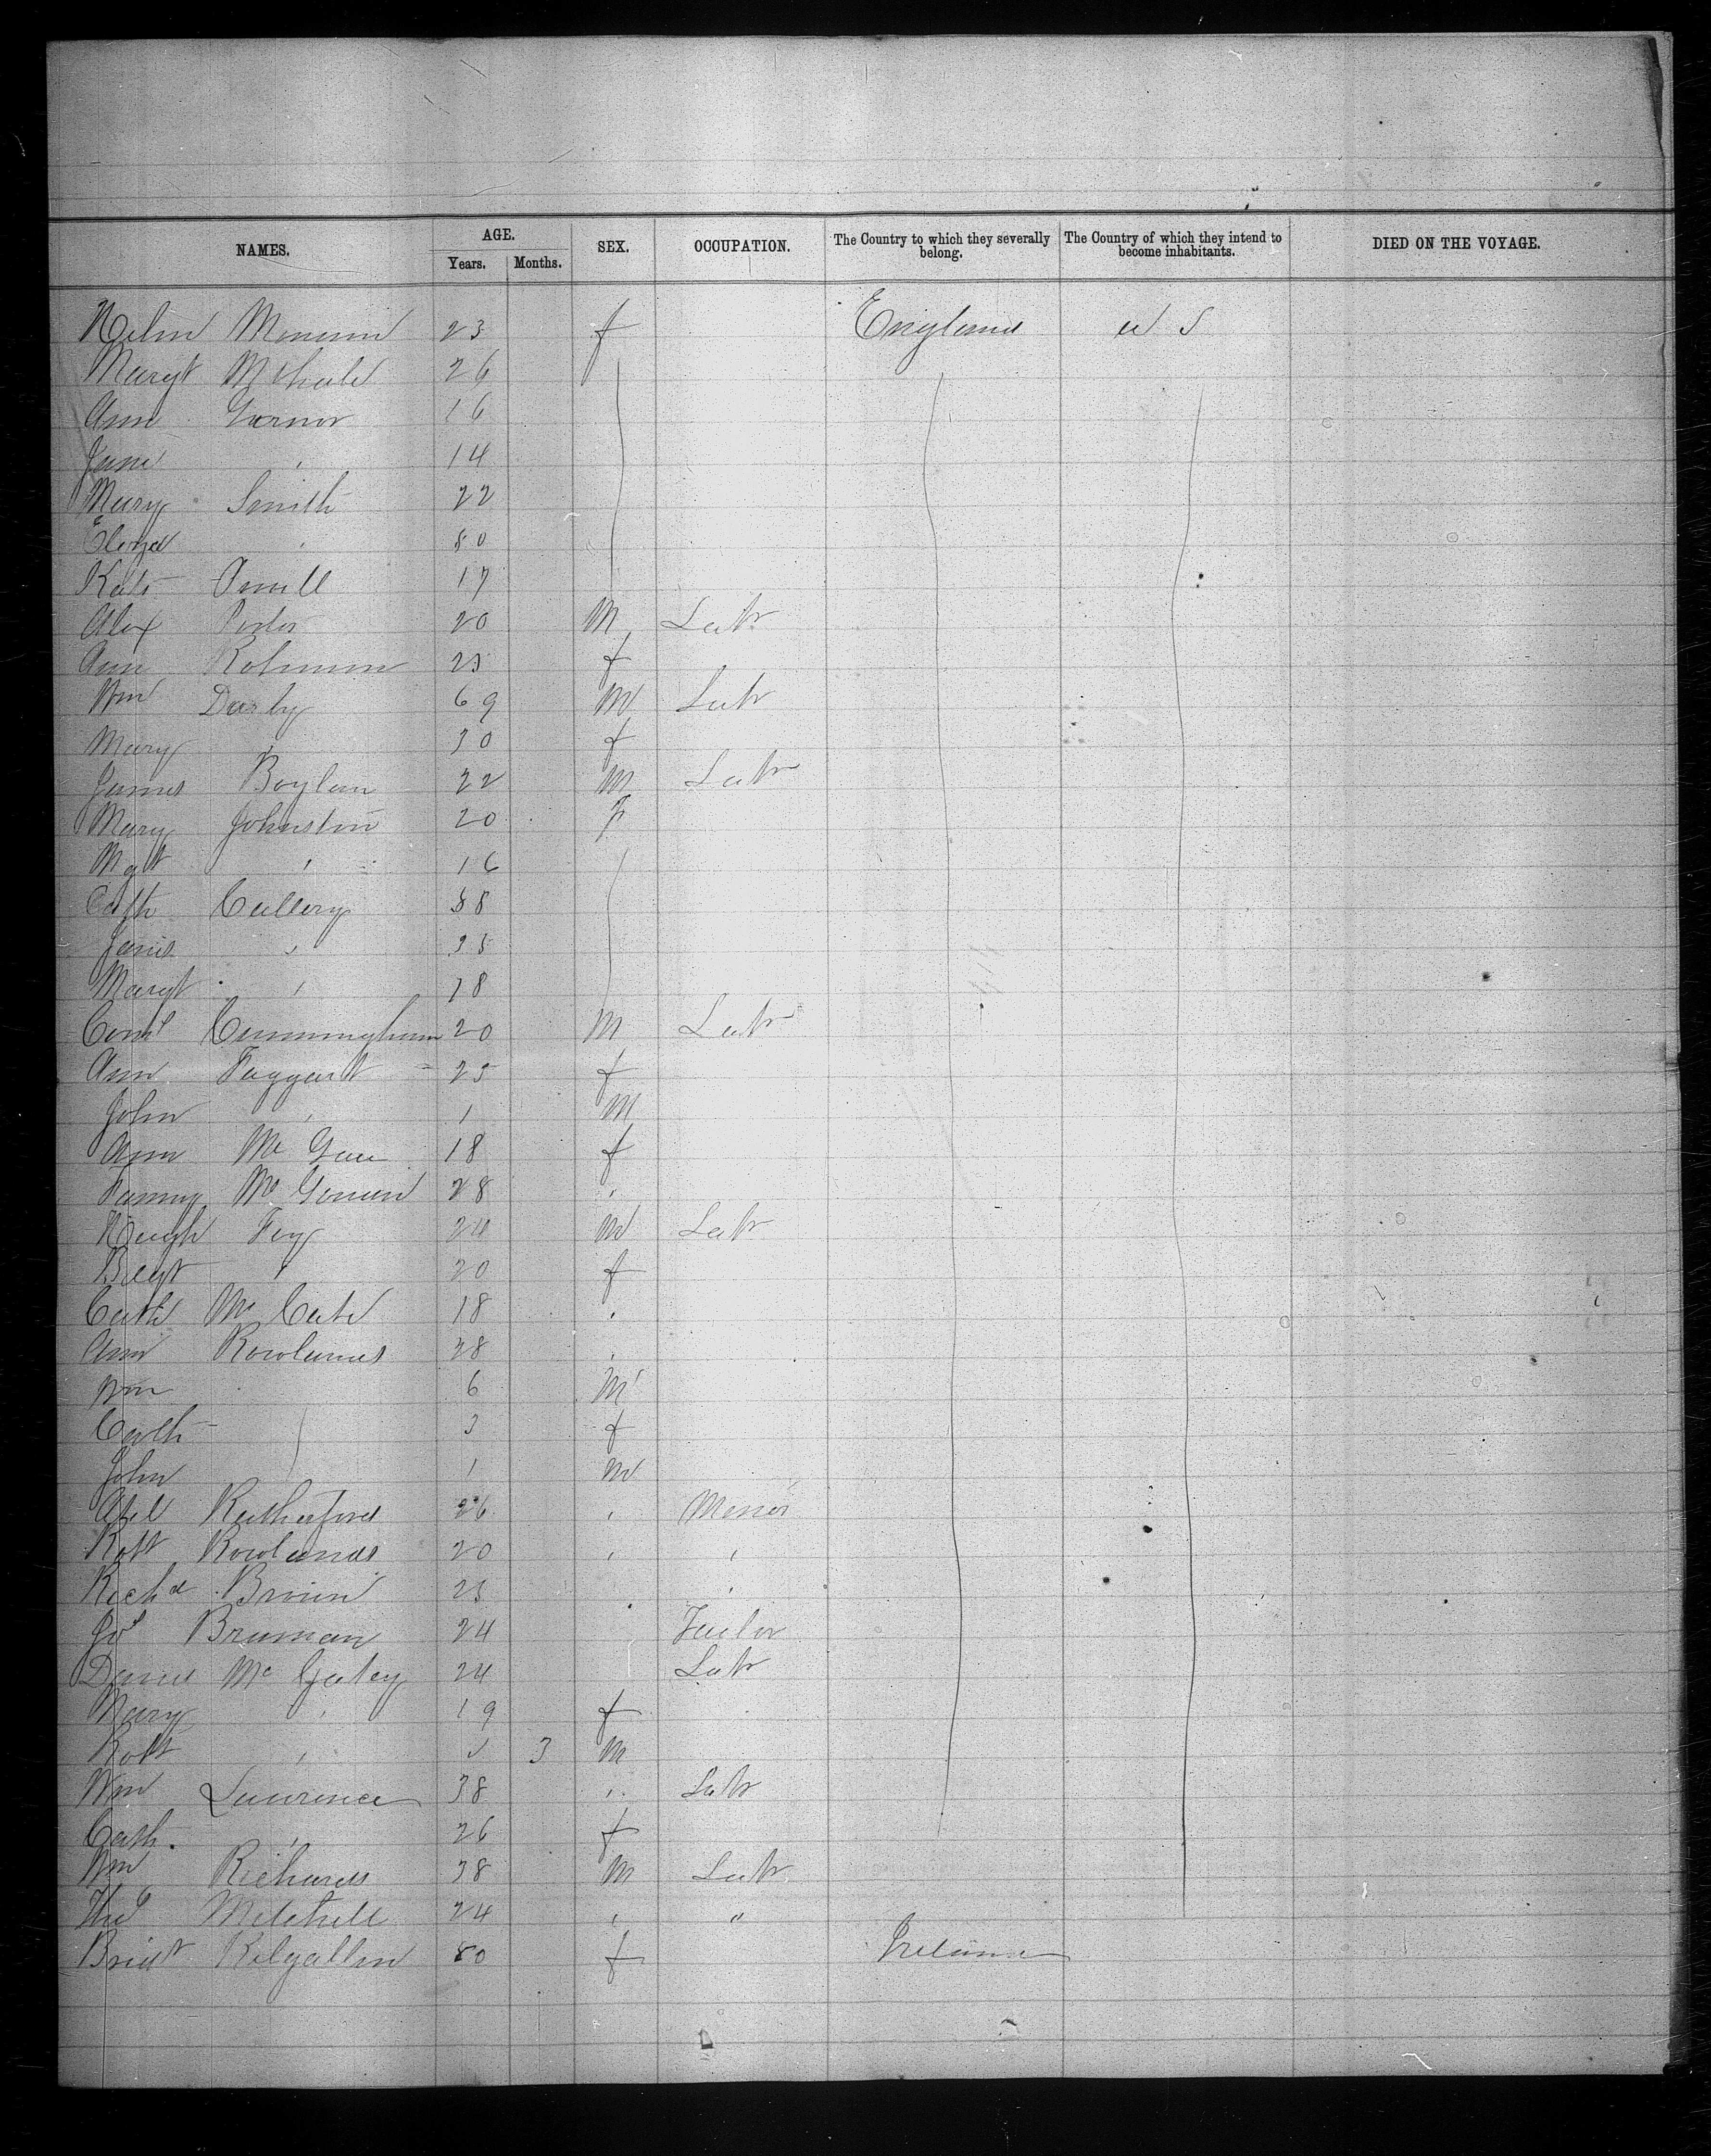 NAMES. AGE. SEX. OCCUPATION. The Country to which they severally belong. The Country of which they intend to become inhabitants. DIED ON THE VOYAGE.
Years. Months.
23 f England U S
Margt McHale 26
Ann 16
Jane " 14
Mary Smith 22
Eliza "
Kate 17
Alex 20 M Labr
Ann Robinson 25 f
Wm Darby 69 M Labr
Mary " 30 f
James Boylan 22 M Labr
Mary Johnston 20 F
Mgt " 16
Cath Cullery
"
Margt " 18
Corns Cunningham 20 M Labr
Ann Taggart 25 f
John " 1 M
Ann Mc 18 f
Fanny Mc 28 "
Hugh Foy 24 M Labr
" 20 f
Cath Mc Cabe 18 "
Ann Rowlands 28 "
Wm 6 M
Cath 3 f
John 1 M
Abel Rutherford 26 " Mason
Robt Rowlands 20 " "
Richd Brown 25 "
24 Tailor
Mc 24 Labr
Mary " 19 f
Robt " 3 M
Wm Lawrence 38 " Labr
Cath. " 26 f
Wm Richards 38 M Labr
Thos Mitchell 24 " "
Bridt Kilgallen f Ireland